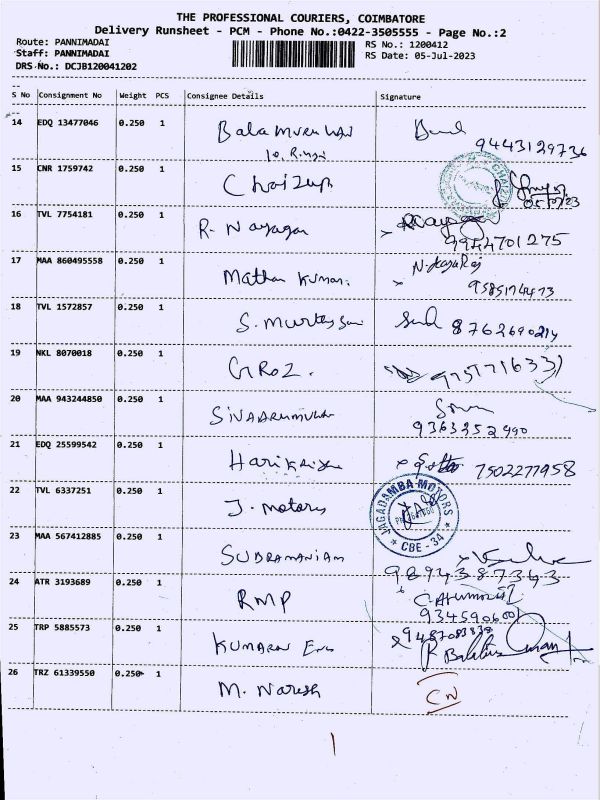 THE PROFESSIONAL COURIERS, COIMBATORE
Delivery Runsheet - PCM - Phone No.:0422-3505555 - Page No.:2
Route: PANNIMADAI RS No.: 1200412
Staff: PANNIMADAI RS Date: 05-Jul-2023
DRS No.: DCJB120041202
S No Consignment No Weight PCS Consignee Details Signature
14 EDQ 13477046 0.250 1 Balamurugan
9443129736
15 CNR 1759742 0.250 1 Chaizup
05/07/23
16 TVL 7754181 0.250 1 R. Nayagan
9944701275
17 MAA 860495558 0.250 1 Mathan Kumar.
18 TVL 1572857 0.250 1 S. 8762690214
19 NKL 8070018 0.250 1
20 MAA 943244850 0.250 1
9363252990
21 EDQ 25599542 0.250 1 7502277958
22 TVL 6337251 0.250 1 J. Motors
JAGADAMBA MOTORS
CBE - 34
23 MAA 567412885 0.250 1 SUBRAMANIAM
9894387343
24 ATR 3193689 0.250 1 RMP
25 TRP 5885573 0.250 1 KUMARAN Eng
9487083838
26 TRZ 61339550 0.250 1 M. Naresh CN
1